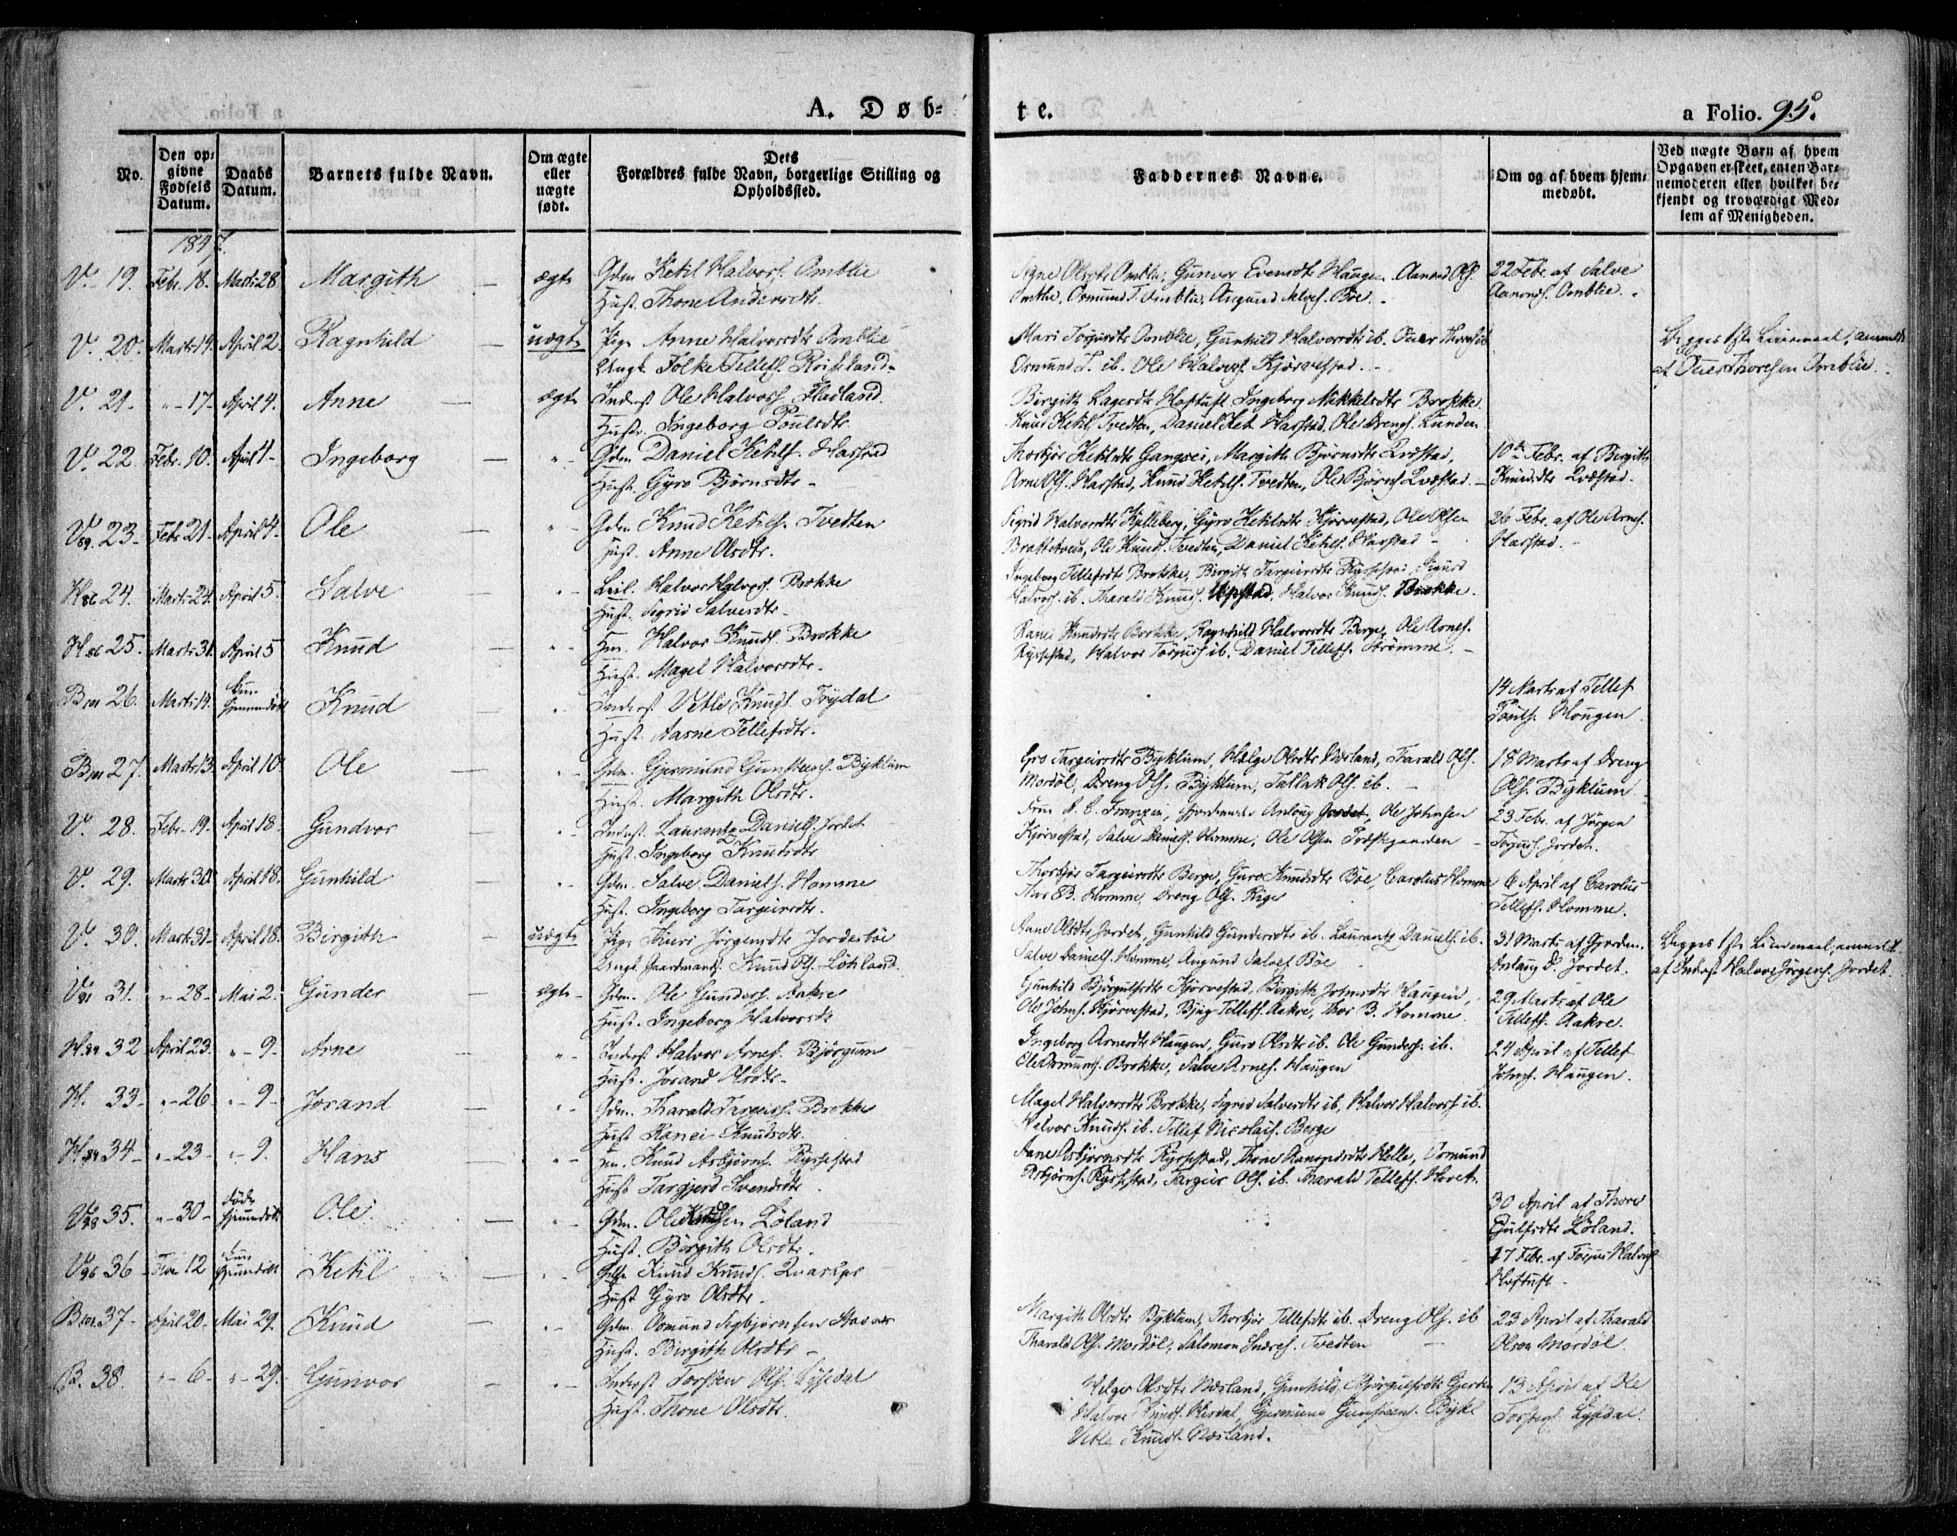 A. Døb=
te.
a Folio. 95.
No.
Den op=
givne
Fødsels
Datum.
Daabs
Datum.
Barnets fulde Navn.
Om ægte
eller
uægte
født.
Dets
Forældres fulde Navn, borgerlige Stilling og
Opholdssted.
Faddernes Navne.
Om og af hvem hjem=
medøbt.
Ved uægte Børn af hvem
Opgaven er skeet, enten Bar=
nemoderen eller hvilket be=
kjendt og troværdigt Med=
lem af Menigheden.
1847.
V. 19. Febr. 18. Marts 28 Margith — ægte Gdm Ketil Halvors. Omblie
Hust. Thone Andersdtr.
Signe Olsdtr Omblie, Gunvor Evensdtr Haugen, Aanund Ols.
Omblie, Osmund T. Omblie, Augund Salves. Böe.
22 Febr. af Salve
Aanonds. Omblie.
V. 20. Marts 19. April 2. Ragnhild — uægte Pige Anne Halvorsdtr Omblie
Ungk. Folke Tellefs. Roiseland.
Mari Torjusdtr Omblie, Gunhild Halvorsdtr ib. Ouer Thores. ib
Osmund T. ib. Ole Halvors. Kjörvestad.
Begges 1ste Leiermaal, anmeldt
af Ouer Thoresen Omblie.
V. 21. " 17. April 4. Anne — ægte Inderst Ole Halvors. Flatland.
Hust. Ingeborg Poulsdtr.
Birgith Aagesdtr Hoftuft, Ingeborg Mikkelsdtr Brokke
Knud Ketils. Tvedten, Daniel Ket. Harstad, Ole Drengs. Lunden
V. 22 Febr. 10. April 4 Ingeborg — " Gdm Daniel Ketils. Harstad
Hust. Gyro Björnsdtr.
Thorbjör Ketilsdtr Gangsei, Margith Björnsdtr Qvistad,
Arne Ols. Harstad, Knud Ketils. Tvedten, Ole Björns. Qvistad.
10de Febr. af Birgith
Knudsdtr Qvistad.
V. 23. Febr. 21. April 4. Ole — " Gdm Knud Ketils. Tvedten
Hust. Anne Olsdtr.
Sigrid Halvorsdtr Kjelleberg, Gyro Ketilsdtr Kjörvestad, Ole Olsen
Brattveit, Ole Knuds. Tvedten, Daniel Ketils. Harstad
26 Febr. af Ole Arnes.
Harstad.
H. 24. Marts 24. April 5. Salve — " Leil. Halvor Halvors. Brokke
Hust. Sigrid Salvesdtr.
Ingeborg Tellefsdtr Brokke, Birgith Targeirsdtr Rysstad, Knud
Halvors. ib. Tharald Knuds. Upstad, Halvor Knuds. Brokke.
H. 25. Marts 31. April 5 Knud — " Hm. Halvor Knuds. Brokke
Hust. Magel Halvorsdtr.
Ranei Knudsdtr Brokke, Ragnhild Halvorsdtr Berge, Ole Arnes.
Rysstad, Halvor Torjus. ib. Daniel Tellefs. Strömme.
B 26. Marts 14. kun
hjemmedöbt Knud " Inderst Vetle Knuds. Trydal
Hust. Aasne Tellefsdtr.
14 Marts af Tellef
Pouls. Hougen.
B 27. Marts 13. April 10. Ole — " Gdm. Gjermund Gunstens. Byklum
Hust. Margith Olsdtr.
Gro Targeirsdtr Byklum, Helge Olsdtr Nesland, Tarald Ols.
Mordöl, Dreng Ols. Byklum, Tallak Ols. ib.
18 Marts af Dreng
Ols. Byklum
V. 28. Febr. 19. April 18. Gundvor — " Inderst Laurantz Daniels. Jordet
Hust. Ingeborg Knudsdtr
Kjörvestad, Salve Daniels. Homme, Ole Olsen Præstgaarden
23 Febr. af Jörgen
Torjus. Jordet.
V. 29. Marts 30. April 18. Gunhild " Gdm. Salve Daniels. Homme
Hust. Ingeborg Targeirsdtr.
Thorbjör Targeirsdtr Berge, Guro Knudsdtr Böe, Carolus Homme
Thor B. Homme, Dreng Ols. Rige
6 April af Carolus
Tellefs. Homme.
V. 30. Marts 31. April 18. Birgith — uægte Pige Kari Jörgensdtr Jordetböe
Ungk. Gaardmands. Knud Ols. Löhland.
Aane Olsdtr Jordet, Gunhild Gundersdtr ib. Laurantz Daniels. ib.
Salve Daniels. Homme, Augund Salves Böe
31 Marts af Gjordem.
Anlaug D. Jordet.
Begges 1ste Leiermaal, anmeldt
af Inderst Halvor Jörgens. Jordet.
V. 31. " 28. Mai 2. Gunder — ægte Gdm. Ole Gunders. Aakre
Hust. Ingeborg Halvorsdtr
Gunhild Björgulfsdtr Kjörvestad, Bergith Johnsdtr Haugen,
Ole Johns. Kjörvestad, Bjug Tellefs. Aakre, Thor B. Homme
29 Marts af Ole
Tellefs. Aakre.
H. 32 April 23. " 9. Arne — " Inderst Halvor Arnes. Björgum
Hust. Jorand Olsdtr.
Ingeborg Arnesdtr Haugen, Guro Olsdtr ib. Ole Gunders. ib.
Ole Osmunds. Brokke, Salve Arnes. Haugen
24 April af Tellef
Johns. Haugen.
H. 33. " 26 " 9. Jorand — " Gdm. Tharald Targeirs. Brokke
Hust Ranei Knudsdtr.
Magel Halvorsdtr Brokke, Sigrid Salvesdtr ib, Halvor Halvors. ib.
Halvor Knuds. ib. Tellef Nicolais. Berge
H. 34 " 23 " 9. Hans — " Hm. Knud Asbjörns. Rysstad
Hust. Targjerd Svendsdtr.
Aane Asbjörnsdtr Rysstad, Thone Aanondsdtr Helle, Osmund
Asbjörns. Rysstad, Targeir Ols. ib. Tharald Tellefs. Hovet.
V. 35. " 30 döde
hjemmedöbt Ole. — " Gdm. Ole Knudsen Löland
Hust. Birgith Olsdtr.
30 April af Thore
Gulfsdtr Löland.
V. 36 Febr 12 kun
hjemmedöbt Ketil — " Knud Knuds. Qvasker
Hust Gyro Olsdtr.
17 Febr. af Torjus Halvors.
Hoftuft
B. 37 April 20. Mai 29. Knud — " Gdm. Osmund Sigbjörnsen Stavnes
Hust. Birgith Olsdtr
Margith Olsdtr Byklum, Thorbjör Tellefsdtr ib. Dreng Ols. ib
Tharald Ols. Mordöl, Salomon Andres. Tvedten
23 April af Tharald
Olson Mordöl.
B. 38. " 6 " 29. Gunvor — " Inderst Torsten Ols. Lysedal
Hust. Thone Olsdtr.
Helge Olsdtr Nesland, Gunhild Björgulfsdtr Gjerden
Halvor Knuds. Nesdal, Gjermund Gunstens. Bykl
Vetle Knuds. Nesland.
13 April af Ole
Torstens. Lysedal.